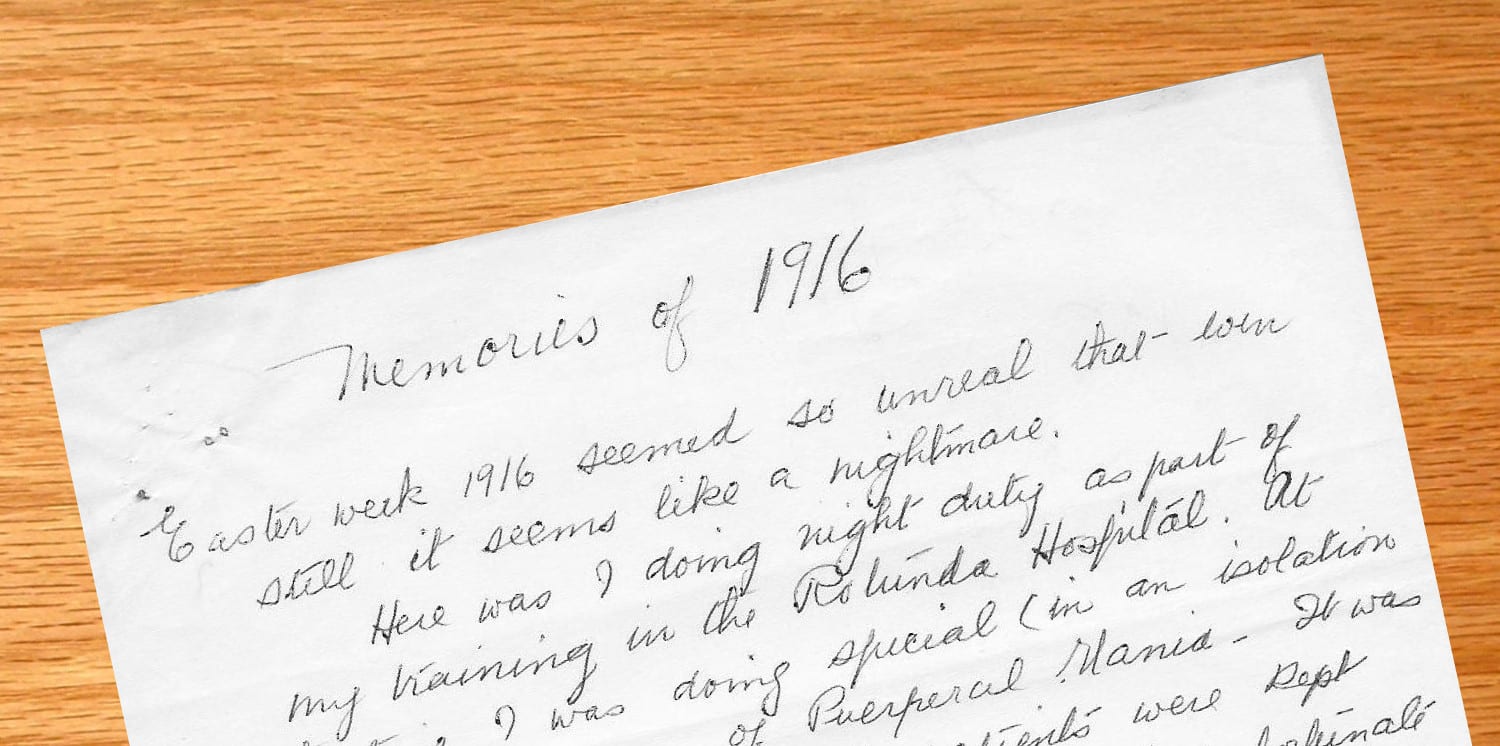 Memories of 1916
Easter week 1916 seemed so unreal that even
still it seems like a nightmare.
Here was I doing night duty as part of
my training in the Rotunda Hospital. At
I was doing special (in an isolation
of Puerperal Mania - It was
were kept